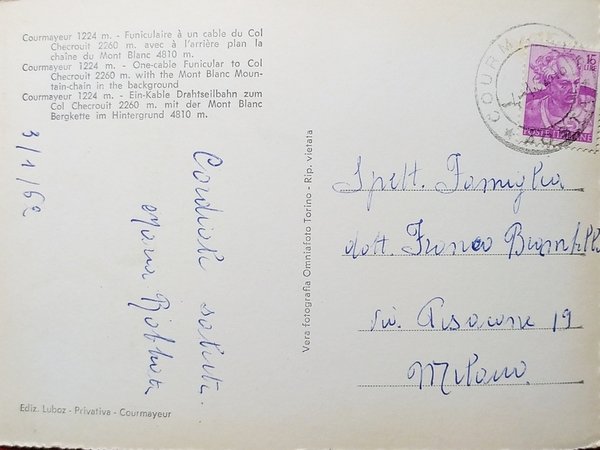 Courmayeur 1224 m. - Funiculaire à un cable du Col
Checrouit 2260 m. avec à l'arrière plan la
chaîne du Mont Blanc 4810 m.
Courmayeur 1224 m. - One-cable Funicular to Col
Checrouit 2260 m. with the Mont Blanc Moun-
tain-chain in the background
Courmayeur 1224 m. - Ein-Kable Drahtseilbahn zum
Col Checrouit 2260 m. mit der Mont Blanc
Bergkette im Hintergrund 4810 m.
3/1/62
Cordiali saluti
Maria
Ediz. Luboz - Privativa - Courmayeur
Vera fotografia Omniafoto Torino - Rip. vietata
COURMAYEUR
15
POSTE ITALIANE
Spett. Famiglia
dott. Franco
via Pisacane 19
Milano